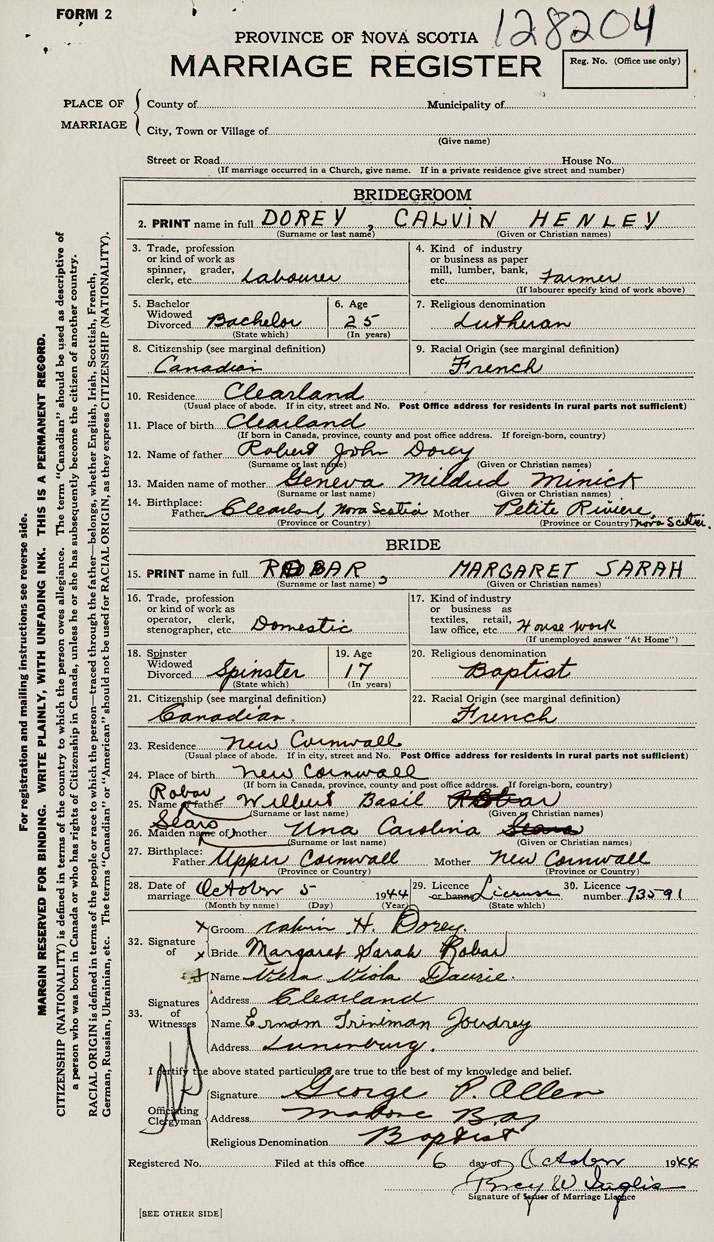 FORM 2
128204
PROVINCE OF NOVA SCOTIA
MARRIAGE REGISTER
Reg. No. (Office use only)
PLACE OF MARRIAGE
County of Municipality of
City, Town or Village of
(Give name)
Street or Road House No.
(If marriage occurred in a Church, give name. If in a private residence give street and number)
BRIDEGROOM
2. PRINT name in full DOREY, CALVIN HENLEY
(Surname or last name) (Given or Christian names)
3. Trade, profession or kind of work as spinner, grader, clerk, etc. Labourer
4. Kind of industry or business as paper mill, lumber, bank, etc. Farmer
(If labourer specify kind of work above)
5. Bachelor Widowed Divorced Bachelor
(State which)
6. Age 25
(In years)
7. Religious denomination
Lutheran
8. Citizenship (see marginal definition)
Canadian
9. Racial Origin (see marginal definition)
French
10. Residence Clearland
(Usual place of abode. If in city, street and No. Post Office address for residents in rural parts not sufficient)
11. Place of birth Clearland
(If born in Canada, province, county and post office address. If foreign-born, country)
12. Name of father Robert John Dorey
(Surname or last name) (Given or Christian names)
13. Maiden name of mother Geneva Mildred Minick
(Surname or last name) (Given or Christian names)
14. Birthplace: Father Clearland Nova Scotia Mother Petite Riviere Nova Scotia.
(Province or Country) (Province or Country)
BRIDE
15. PRINT name in full ROBAR, MARGARET SARAH
(Surname or last name) (Given or Christian names)
16. Trade, profession or kind of work as operator, clerk, stenographer, etc. Domestic
17. Kind of industry or business as textiles, retail, law office, etc. House work
(If unemployed answer "At Home")
18. Spinster Widowed Divorced Spinster
(State which)
19. Age 17
(In years)
20. Religious denomination
Baptist
21. Citizenship (see marginal definition)
Canadian.
22. Racial Origin (see marginal definition)
French
23. Residence New Cornwall
(Usual place of abode. If in city, street and No. Post Office address for residents in rural parts not sufficient)
24. Place of birth New Cornwall
(If born in Canada, province, county and post office address. If foreign-born, country)
Robar
25. Name of father Wilbert Basil Robar
(Surname or last name) (Given or Christian names)
Sears
26. Maiden name of mother Una Carolina Sears
(Surname or last name) (Given or Christian names)
27. Birthplace: Father Upper Cornwall Mother New Cornwall
(Province or Country) (Province or Country)
28. Date of marriage October 5 1944
(Month by name) (Day) (Year)
29. Licence or banns License
(State which)
30. Licence number 73591
32. Signature of
x Groom Calvin H. Dorey.
x Bride Margaret Sarah Robar
33. Signatures of Witnesses
Name Vera Viola Daurie.
Address Clearland
Name Joudrey
Address Lunenburg.
I certify the above stated particulars are true to the best of my knowledge and belief.
Officiating Clergyman
Signature George P. Allen
Address Mahone Bay
Religious Denomination Baptist
Registered No. Filed at this office 6 day of October 1944
Signature of Issuer of Marriage Licence
[SEE OTHER SIDE]
For registration and mailing instructions see reverse side.
MARGIN RESERVED FOR BINDING. WRITE PLAINLY, WITH UNFADING INK. THIS IS A PERMANENT RECORD.
CITIZENSHIP (NATIONALITY) is defined in terms of the country to which the person owes allegiance. The term "Canadian" should be used as descriptive of
a person who was born in Canada or who has rights of Citizenship in Canada, unless he or she has subsequently become the citizen of another country.
RACIAL ORIGIN is defined in terms of the people or race to which the person—traced through the father—belongs, whether English, Irish, Scottish, French,
German, Russian, Ukrainian, etc. The terms "Canadian" or "American" should not be used for RACIAL ORIGIN, as they express CITIZENSHIP (NATIONALITY).